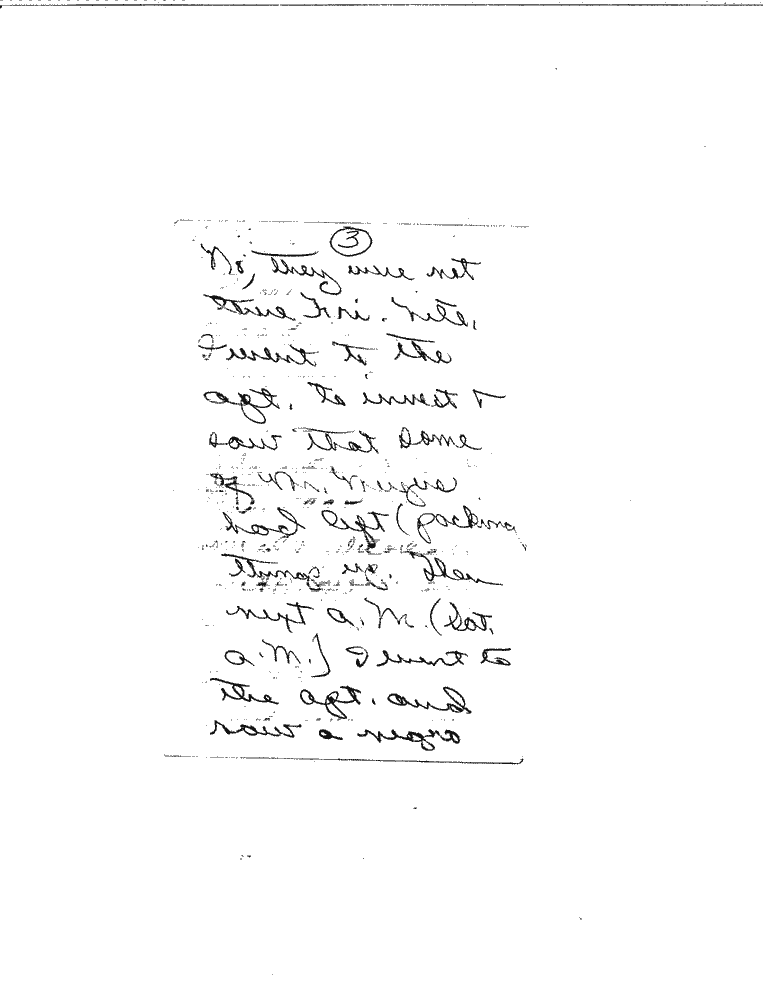 3
No, they were not
there Fri. nite,
I went to the
apt. to invest &
saw that some
of Mr.
had left (packing
things up. Then
next a.m. (Sat.
a.m.) I went to
the apt. and
saw a negro